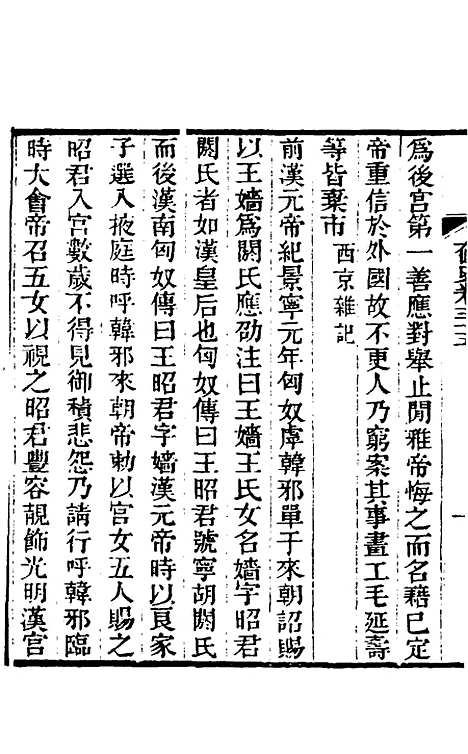 爲後宮第一善應對舉止閒雅帝悔之而名籍已定
帝重信於外國故不更人乃窮案其事畫工毛延壽
等皆棄市西京雜記
前漢元帝紀景寧元年匈奴虖韓邪單于來朝詔賜
以王嬙爲閼氏應劭注曰王嬙王氏女名嬙字昭君
閼氏者如漢皇后也匈奴傳曰王昭君號寧胡閼氏
而後漢南匈奴傳曰王昭君字嬙漢元帝時以良家
子選入掖庭時呼韓邪來朝帝勑以宮女五人賜之
昭君入宮數歲不得見御積悲怨乃請行呼韓邪臨
時大會帝召五女以視之昭君豐容靚飾光明漢宮
卷三十五
一